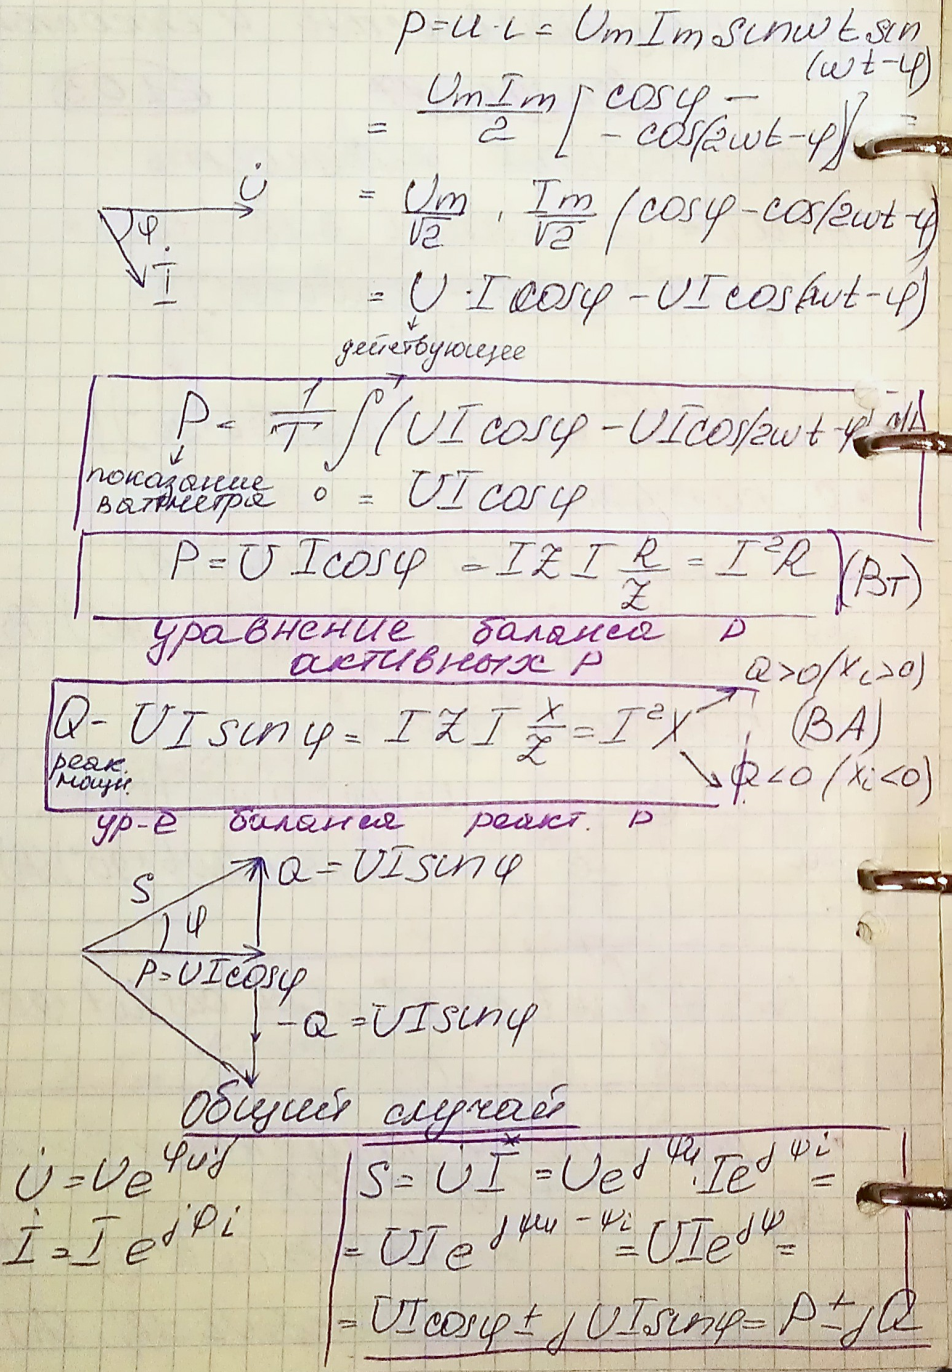 p=u·i = UmIm sinωt sin
(ωt-φ)
= UmIm/2 [ cosφ -
- cos(2ωt-φ)] =
= Um/√2 · Im/√2 (cosφ-cos(2ωt-φ)
U̇
φ
İ
= U·I cosφ - UI cos(2ωt-φ)
действующее
P = 1/T ∫ (UI cosφ - UIcos(2ωt-φ) dt
показание
ваттметра 0 = UI cosφ
P=U I cosφ = I Z I R/Z = I²R (Вт)
уравнение баланса P
активных P
Q>0 (xᵢ>0)
Q- UI sinφ = I Z I X/Z = I²X (ВА)
реак.
мощн.
Q<0 (xᵢ<0)
ур-е баланса реакт. P
S
Q = UI sinφ
φ
P=UI cosφ
-Q = UI sinφ
Общий случай
U̇ = Ue^φuj
İ = I e^jφi
S = U̇ I* = Ue^jψu · Ie^jψi =
= UIe^jψu-ψi = UIe^jφ =
= UI cosφ ± j UI sinφ = P ± jQ